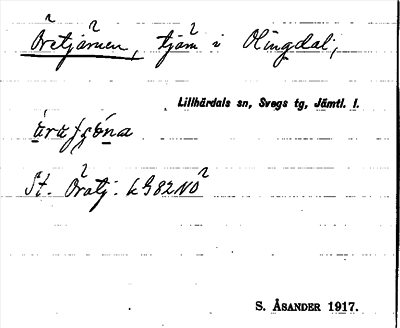 Öretjärnen, tjärn i Olingdal,
Lillhärdals sn, Svegs tg, Jämtl. l.
St. Öratj. k G82NO²
S. ÅSANDER 1917.